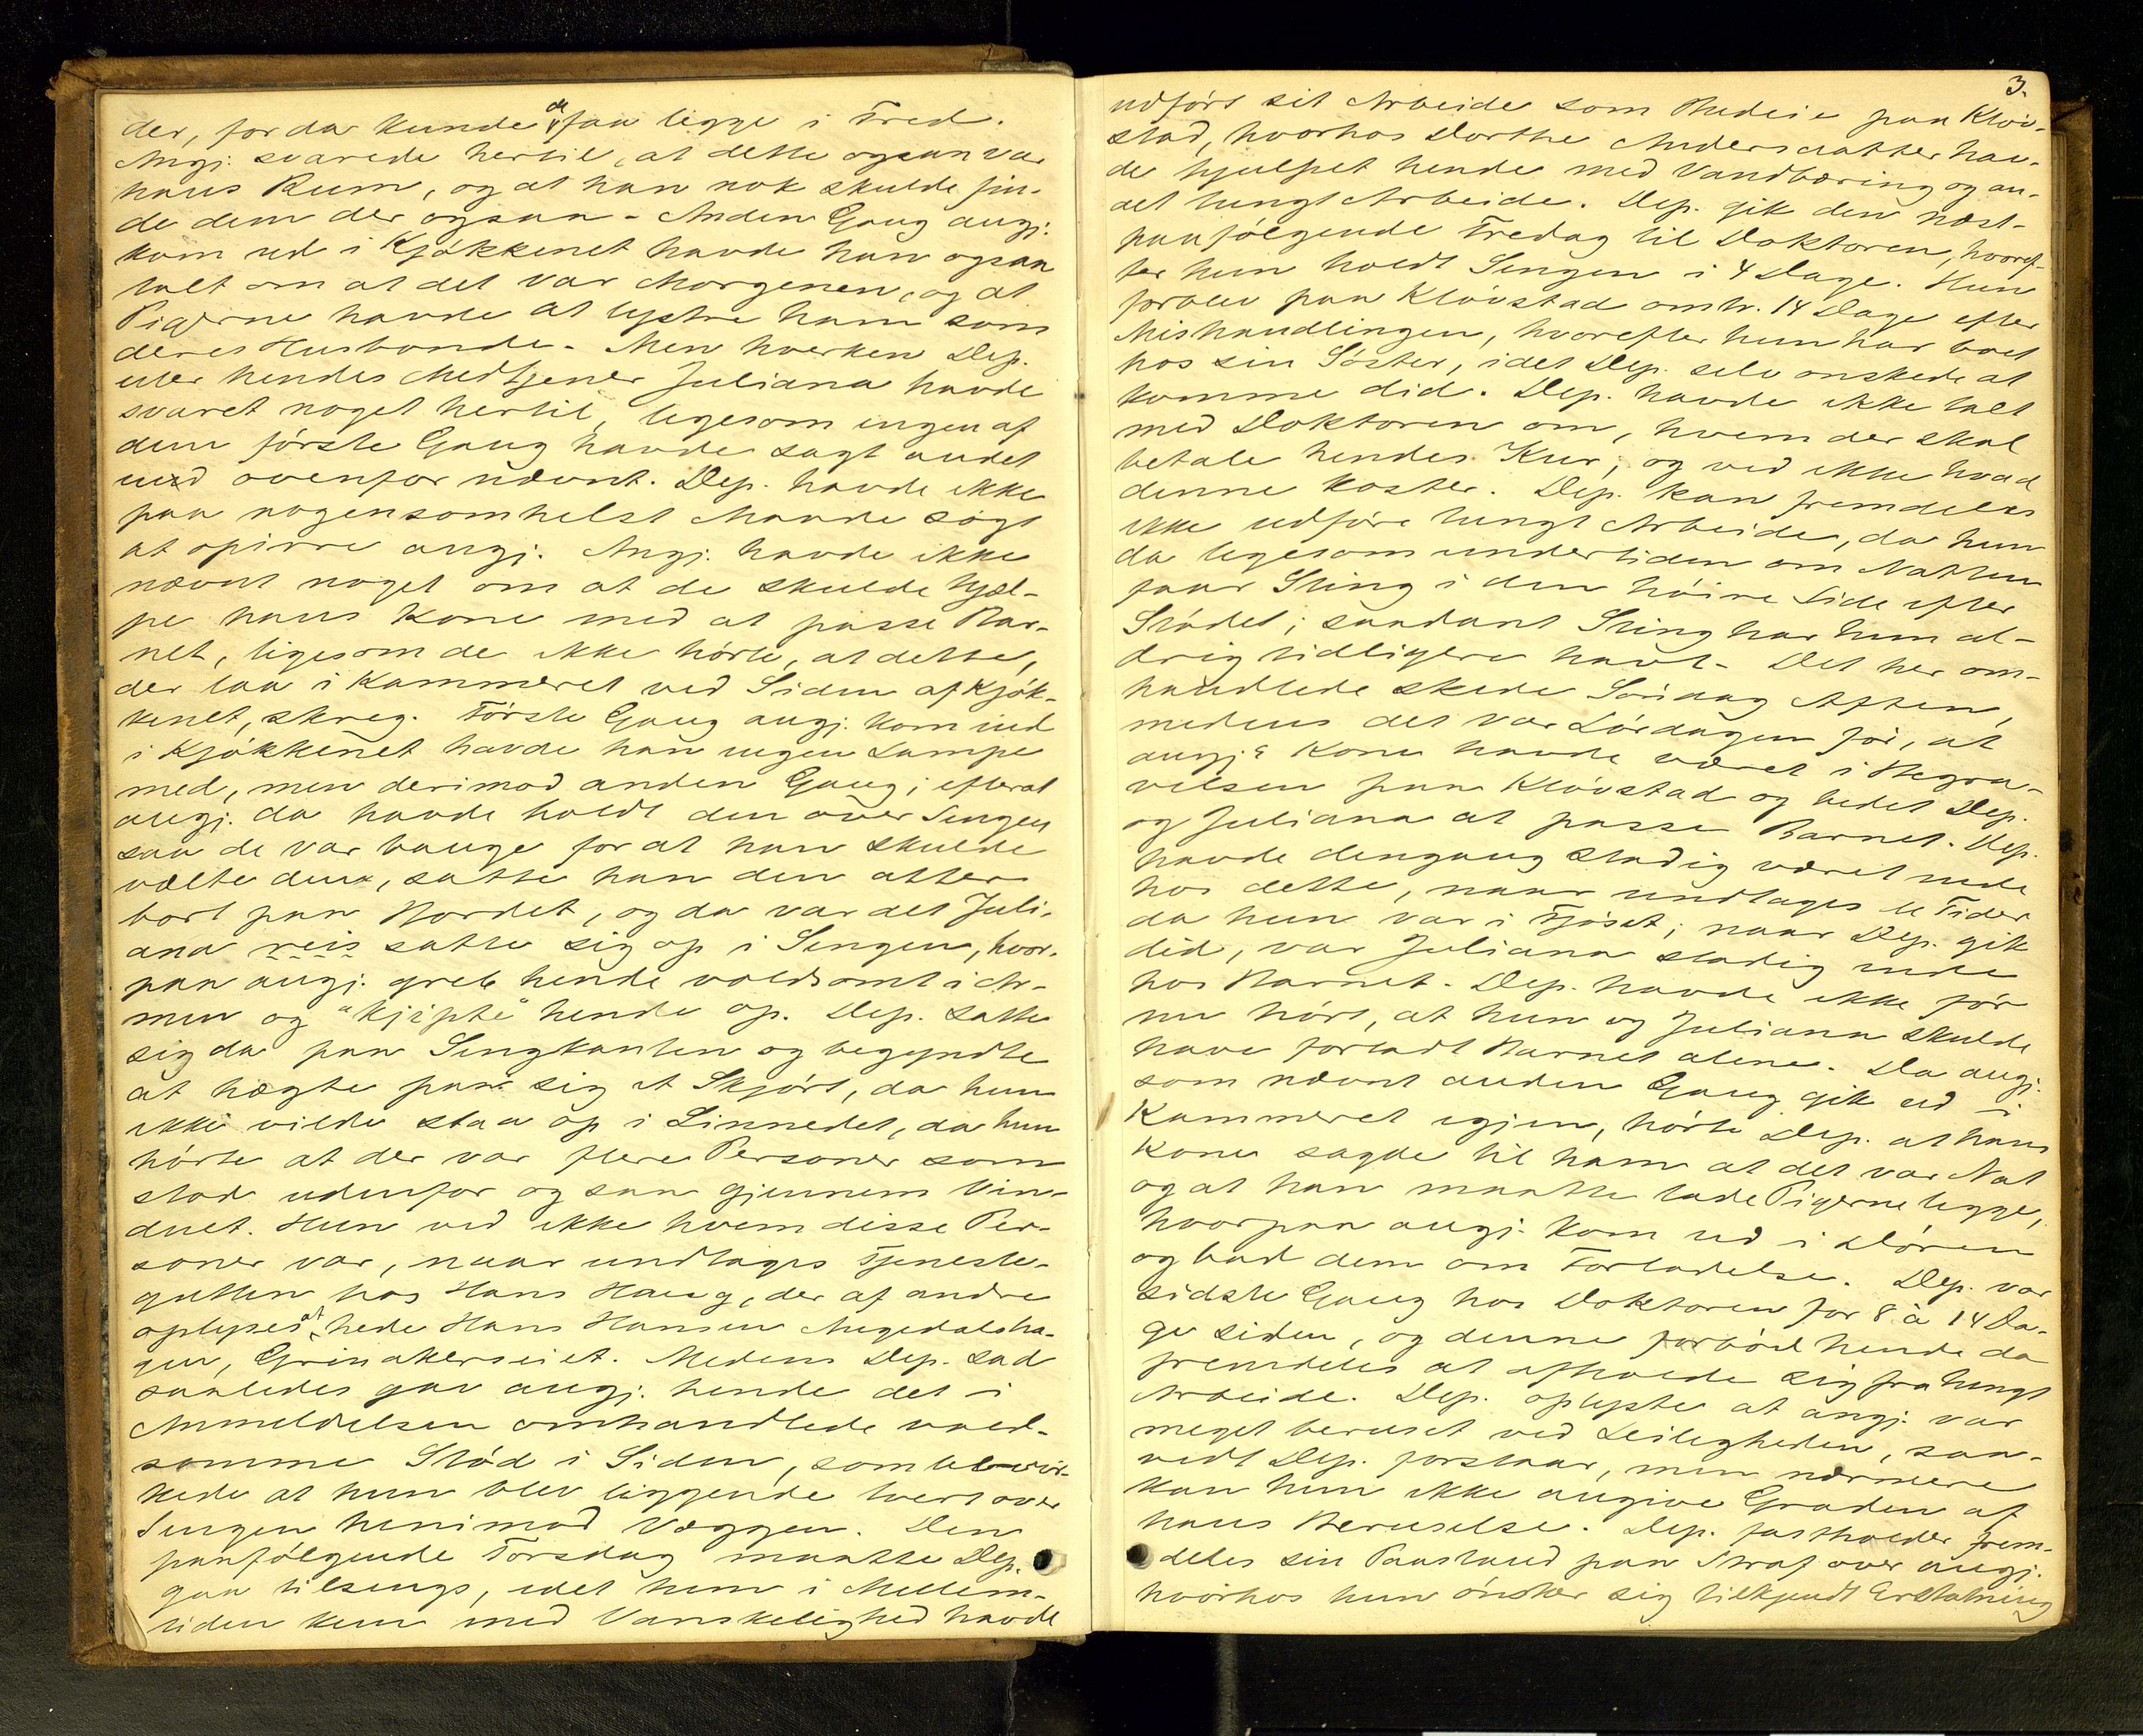 der, for da kunde de faa ligge i Fred.
Angj. svarede hertil, at dette ogsaa var
hans Rum, og at han nok skulde fin-
de dem der ogsaa - Anden Gang angj.
kom ud i Kjøkkenet havde han ogsaa
talt om at det var Morgenen, og at
Pigerne havde at lystre ham som
deres Husbonde. Men hverken Dep.
eller hendes Medtjener Juliana havde
svaret noget hertil, ligesom ingen af
dem første Gang havde sagt andet
end ovenfor nævnt. Dep. havde ikke
paa nogensomhelst Maade søgt
at opirre angj. Angj. havde ikke
nævnt noget om at de skulde hjæl-
pe hans Kone med at passe Bar-
net, ligesom de ikke hørte, at dette,
der laa i Kammeret ved Siden af Kjøk-
kenet, skreg. Første Gang angj. kom ind
i Kjøkkenet havde han ingen Lampe
med, men derimod anden Gang; efterat
angj. da havde holdt den over Sengen
saa de var bange for at han skulde
vælte den, satte han den atter
bort paa Bordet, og da var det Juli-
ana reis satte sig op i Sengen, hvor-
paa angj. greb hende voldsomt i Ar-
men og "kjipte" hende op. Dep. satte
sig da paa Sengkanten og begyndte
at hægte paa sig et Skjørt, da hun
ikke vilde staa op i Linnedet, da hun
hørte at der var flere Personer som
stod udenfor og saa gjennem Vin-
duet. Hun ved ikke hvem disse Per-
soner var, naar undtages Tjeneste-
gutten hos Hans Haug, der af andre
oplyses at hede Hans Hansen
gen, Grinakerseiet. Medens Dep. sad
saaledes gav angj. hende det i
Anmeldelsen omhandlede vold-
somme Stød i Siden, som bevir-
kede at hun blev liggende tvert over
Sengen henimod Væggen. Den
paafølgende Torsdag maatte Dep.
gaa tilsengs, idet hun i Mellem-
tiden kun med Vanskelighed havde
3.
udført sit Arbeide som Budeie paa Kløv-
stad, hvorhos Dorthe Andersdatter hav-
de hjulpet hende med Vandbæring og an-
det tungt Arbeide. Dep. gik den næst-
paafølgende Fredag til Doktoren, hvoref-
ter hun holdt Sengen i 4 Dage. Hun
forblev paa Kløvstad omtr. 14 Dage efter
Mishandlingen, hvorefter hun har boet
hos sin Søster, idet Dep. selv ønskede at
komme did. Dep. havde ikke talt
med Doktoren om, hvem der skal
betale hendes Kur, og ved ikke hvad
denne koster. Dep. kan fremdeles
ikke udføre tungt Arbeide, da hun
da ligesom undertiden om Natten
faar Sting i den høire Side efter
Stødet; saadant Sting har hun al-
drig tidligere havt - Det her om-
handlede skede Søndag Aften,
medens det var Lørdagen før, at
angj.s Kone havde været i Begra-
velsen paa Kløvstad og bedet Dep.
og Juliana at passe Barnet. Dep.
havde dengang stadig været inde
hos dette, naar undtages de Tider
da hun var i Fjøset; naar Dep. gik
did, var Juliana stadig inde
hos Barnet. Dep. havde ikke før
nu hørt, at hun og Juliana skulde
have forladt Barnet alene. Da angj.
som nævnt anden Gang gik ud i
Kammeret igjen, hørte Dep. at hans
Kone sagde til ham at det var Nat
og at han maatte lade Pigerne ligge,
hvorpaa angj. kom ud i Døren
og bad dem om Forladelse. Dep. var
sidste Gang hos Doktoren for 8 à 14 Da-
ge siden, og denne forbød hende da
fremdeles at afholde sig fra tungt
Arbeide. Dep. oplyste at angj. var
meget beruset ved Leiligheden, saa-
vidt Dep. forstaar, men nærmere
kan hun ikke angive Graden af
hans Beruselse. Dep. fastholder frem-
deles sin Paastand paa Straf over angj.
hvorhos hun ønsker sig tilkjendt Erstatning